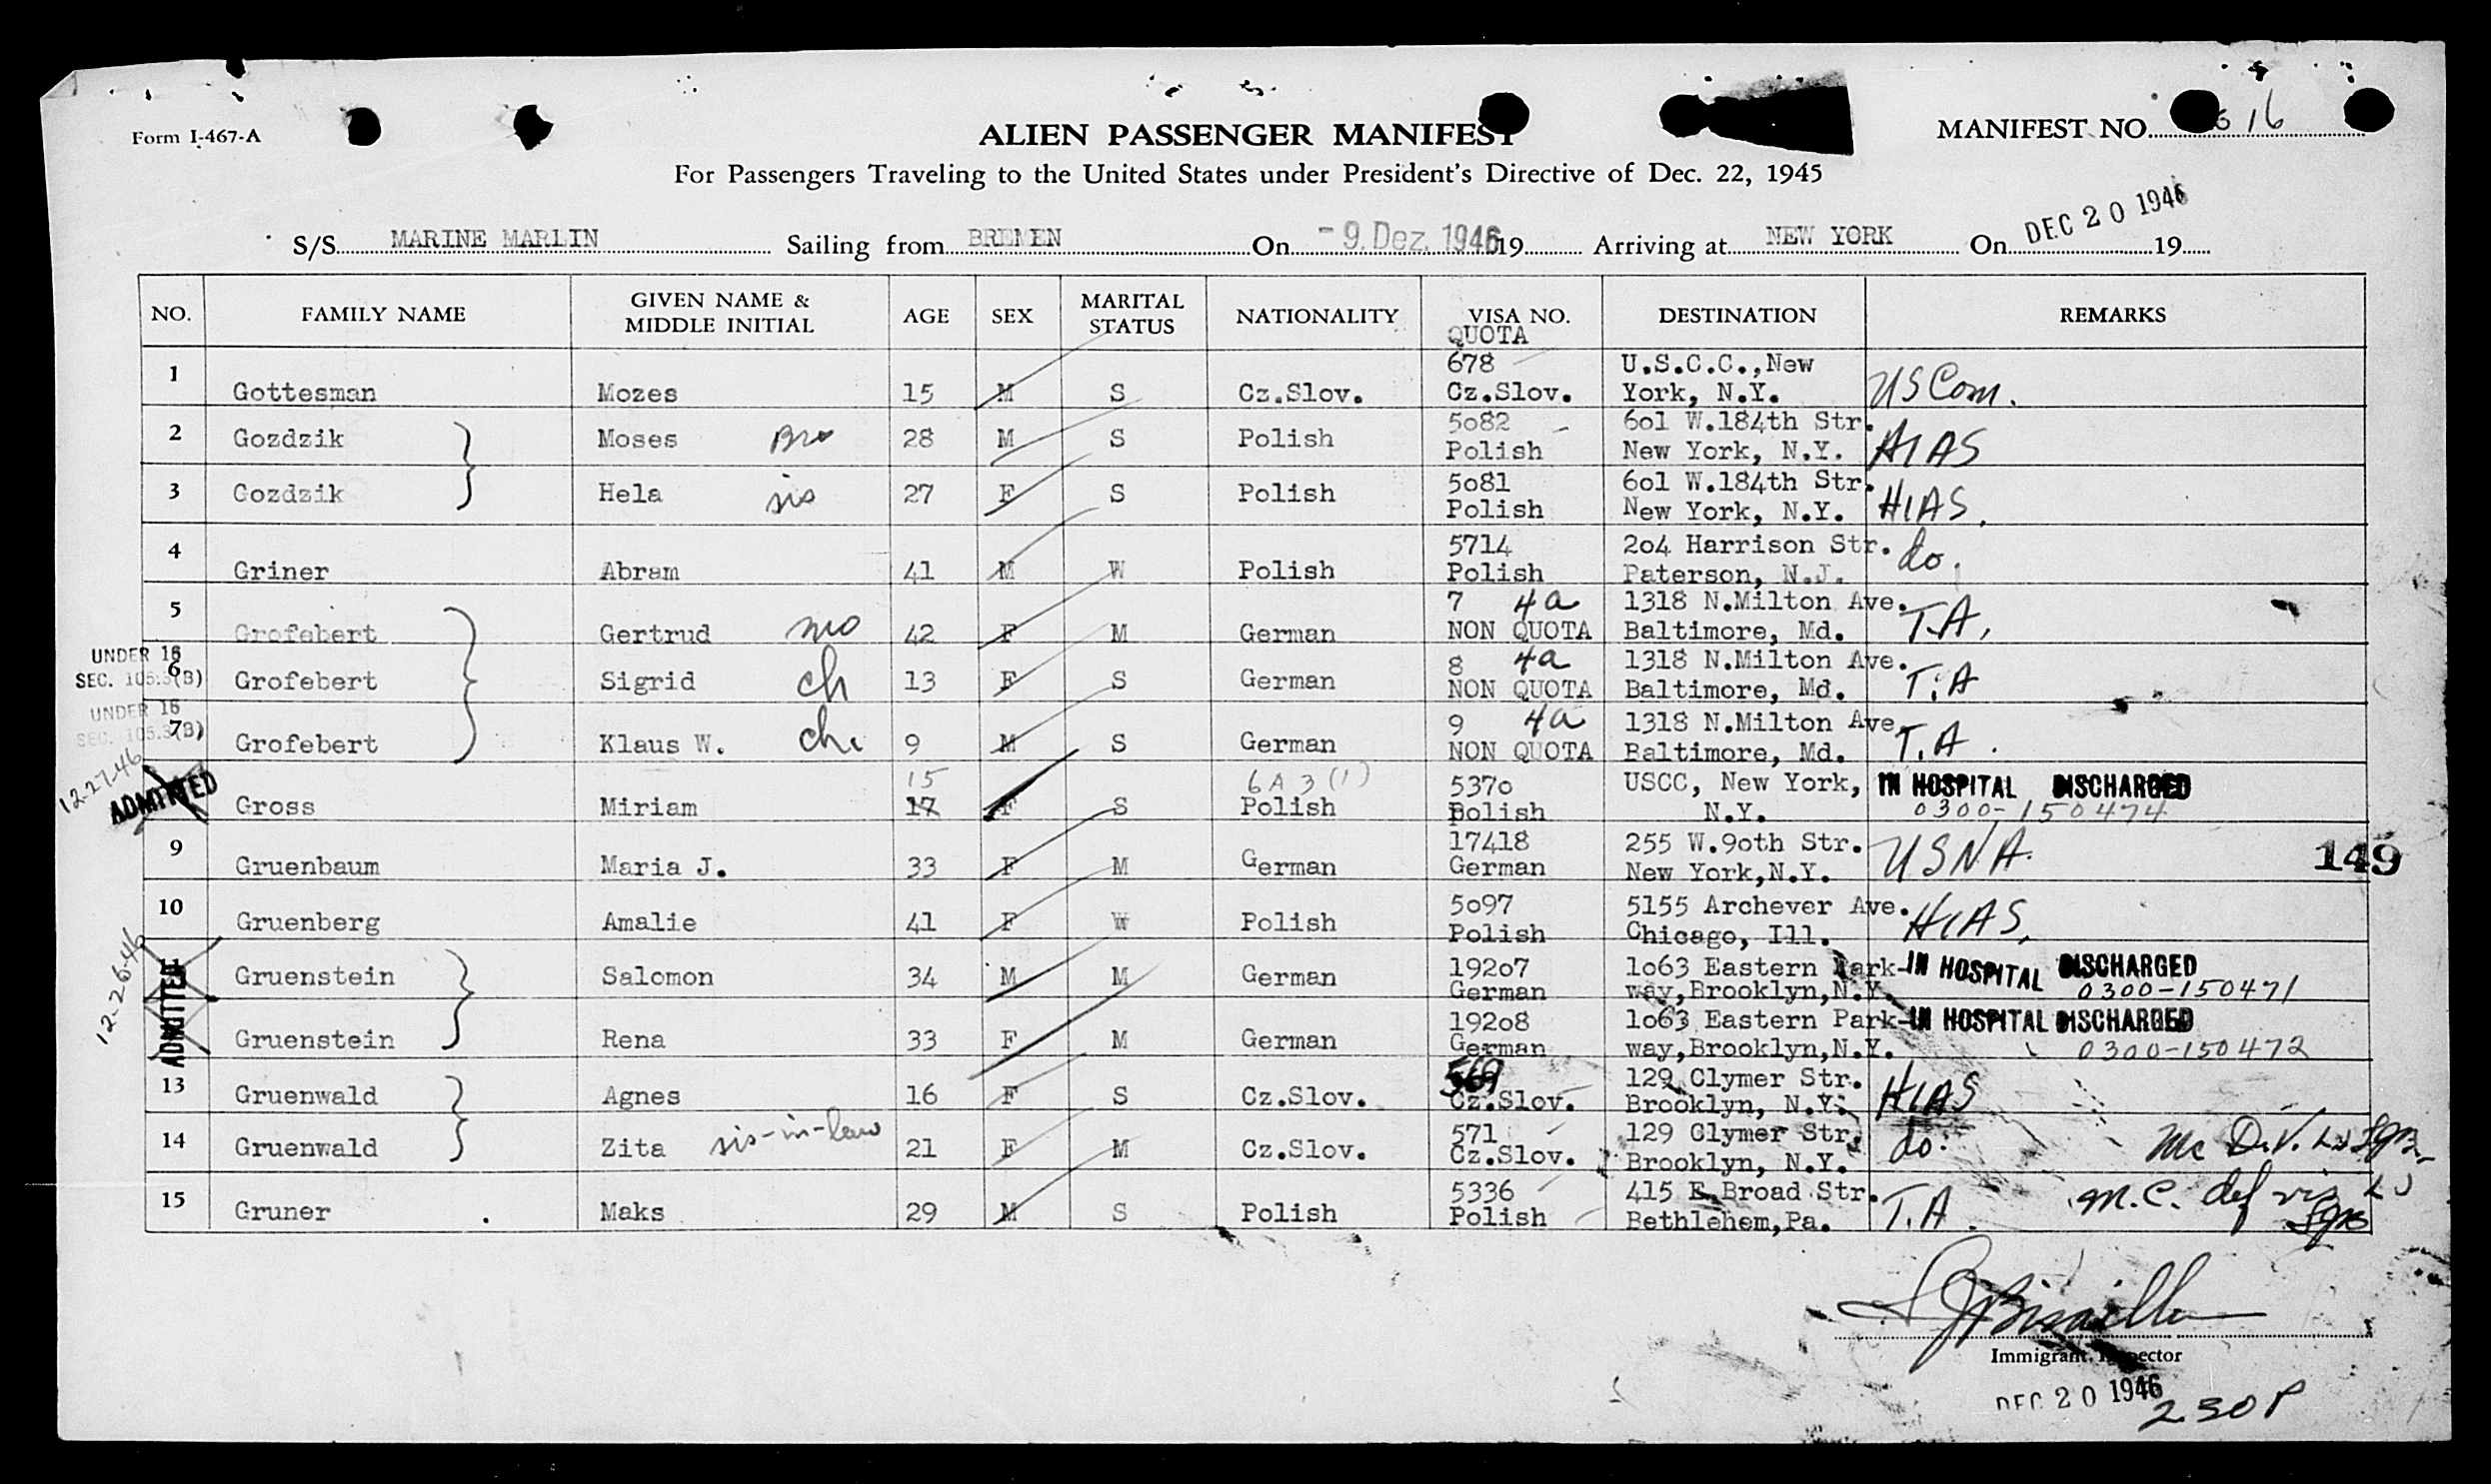 Form I-467-A
ALIEN PASSENGER MANIFEST
MANIFEST NO. 16
For Passengers Traveling to the United States under President's Directive of Dec. 22, 1945
S/S MARINE MARLIN Sailing from BREMEN On - 9. Dez. 1946 19 Arriving at NEW YORK On DEC 20 1946 19
NO. FAMILY NAME GIVEN NAME & MIDDLE INITIAL AGE SEX MARITAL STATUS NATIONALITY VISA NO. QUOTA DESTINATION REMARKS
1 Gottesman Mozes 15 M S Cz.Slov. 678 Cz.Slov. U.S.C.C.,New York, N.Y. US Com.
2 Gozdzik Moses Bro 28 M S Polish 5082 Polish 6o1 W.184th Str. New York, N.Y. HIAS
3 Gozdzik Hela sis 27 F S Polish 5o81 Polish 6o1 W.184th Str. New York, N.Y. HIAS.
4 Griner Abram 41 M W Polish 5714 Polish 2o4 Harrison Str. Paterson, N.J. do.
5 Grofebert Gertrud mo 42 F M German 7 4a NON QUOTA 1318 N.Milton Ave. Baltimore, Md. T.A.
UNDER 16 SEC. 105.3(B)
6 Grofebert Sigrid ch 13 F S German 8 4a NON QUOTA 1318 N.Milton Ave. Baltimore, Md. T.A
UNDER 16 SEC. 105.3(B)
7 Grofebert Klaus W. ch. 9 M S German 9 4a NON QUOTA 1318 N.Milton Ave. Baltimore, Md. T.A.
12-27-46 ADMITTED
Gross Miriam 15 17 F S 6A3(1) Polish 537o Polish USCC, New York, N.Y. IN HOSPITAL DISCHARGED 0300-150474
9 Gruenbaum Maria J. 33 F M German 17418 German 255 W.9oth Str. New York,N.Y. USNA.
149
10 Gruenberg Amalie 41 F W Polish 5o97 Polish 5155 Archever Ave. Chicago, Ill. HIAS.
12-26-46 ADMITTED
11 Gruenstein Salomon 34 M M German 192o7 German 1o63 Eastern Park- way,Brooklyn,N.Y. IN HOSPITAL DISCHARGED 0300-150471
Gruenstein Rena 33 F M German 192o8 German 1o63 Eastern Park- way,Brooklyn,N.Y. IN HOSPITAL DISCHARGED 0300-150472
13 Gruenwald Agnes 16 F S Cz.Slov. 569 Cz.Slov. 129 Clymer Str. Brooklyn, N.Y. HIAS
14 Gruenwald Zita sis-in-law 21 F M Cz.Slov. 571 Cz.Slov. 129 Clymer Str. Brooklyn, N.Y. do.
15 Gruner Maks 29 M S Polish 5336 Polish 415 E.Broad Str. Bethlehem,Pa. T.A. M.C. def
Immigrant Inspector
DEC 20 1946
2 30 P